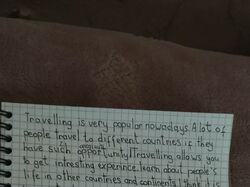 Travelling is very popular nowadays. A lot of
people travel to different countries if they
have such opportunity. Travelling allows you
to get intresting experince, learn about people's
life in other countries and continents. I think it is